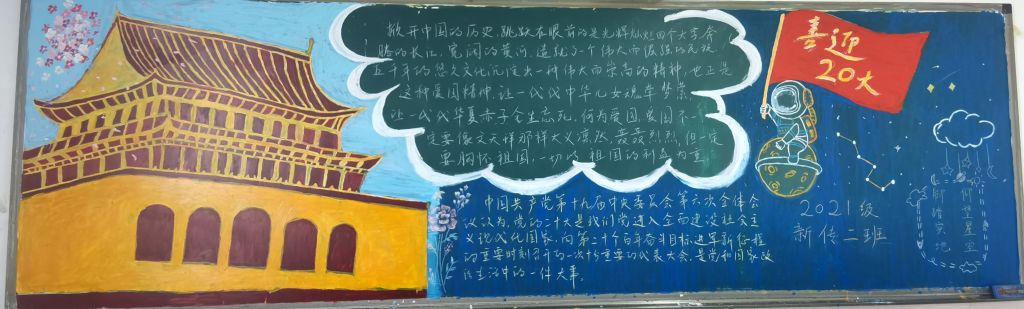 掀开中国的历史,跳跃在眼前的是光辉灿烂四个大字,奔
腾的长江,宽阔的黄河,造就了一个伟大而团结的民族,
五千年的悠久文化沉淀出一种伟大而崇高的精神,也正是
这种爱国精神,让一代代中华儿女魂牵梦萦
让一代代华夏赤子全生忘死。何为爱国,爱国不一
定要像文天祥那样大义凛然,轰轰烈烈,但一定
要胸怀祖国,一切以祖国的利益为重
中国共产党第十九届中央委员会第六次全体会
议认为,党的二十大是我们党进入全面建设社会主
义现代化国家,向第二个百年奋斗目标进军新征程
的重要时刻召开的一次十分重要的代表大会,是党和国家政
治生活中的一件大事。
喜迎
20大
2021级
新传二班
仰望星空
脚踏实地